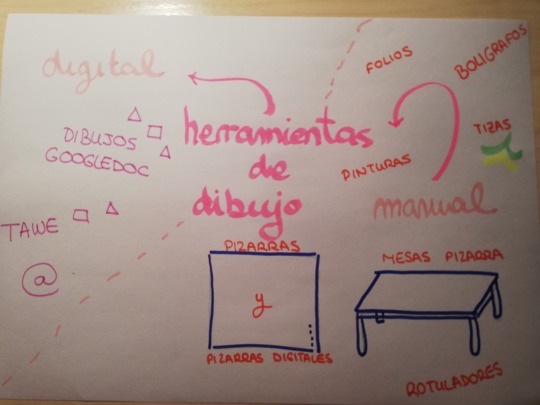 digital
FOLIOS
BOLIGRAFOS
herramientas
de
dibujo
TIZAS
DIBUJOS
GOOGLEDOC
PINTURAS
manual
TAWE
@
PIZARRAS
y
PIZARRAS DIGITALES
MESAS PIZARRA
ROTULADORES